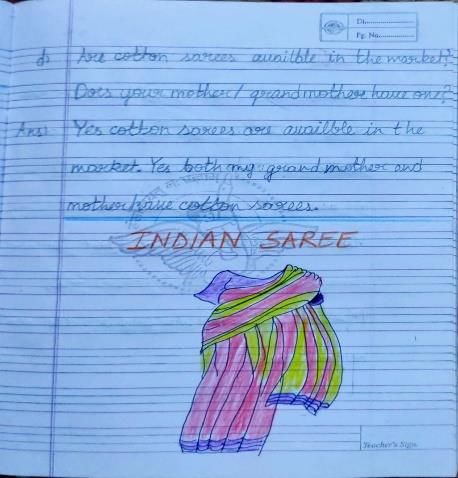 Dt.................
Pg. No.................
d) Are cotton sarees availble in the market?
Does your mother/ grandmother have one?
Ans) Yes cotton sarees are availble in the
market. Yes both my grand mother and
mother have cotton sarees.
INDIAN SAREE
Teacher's Sign